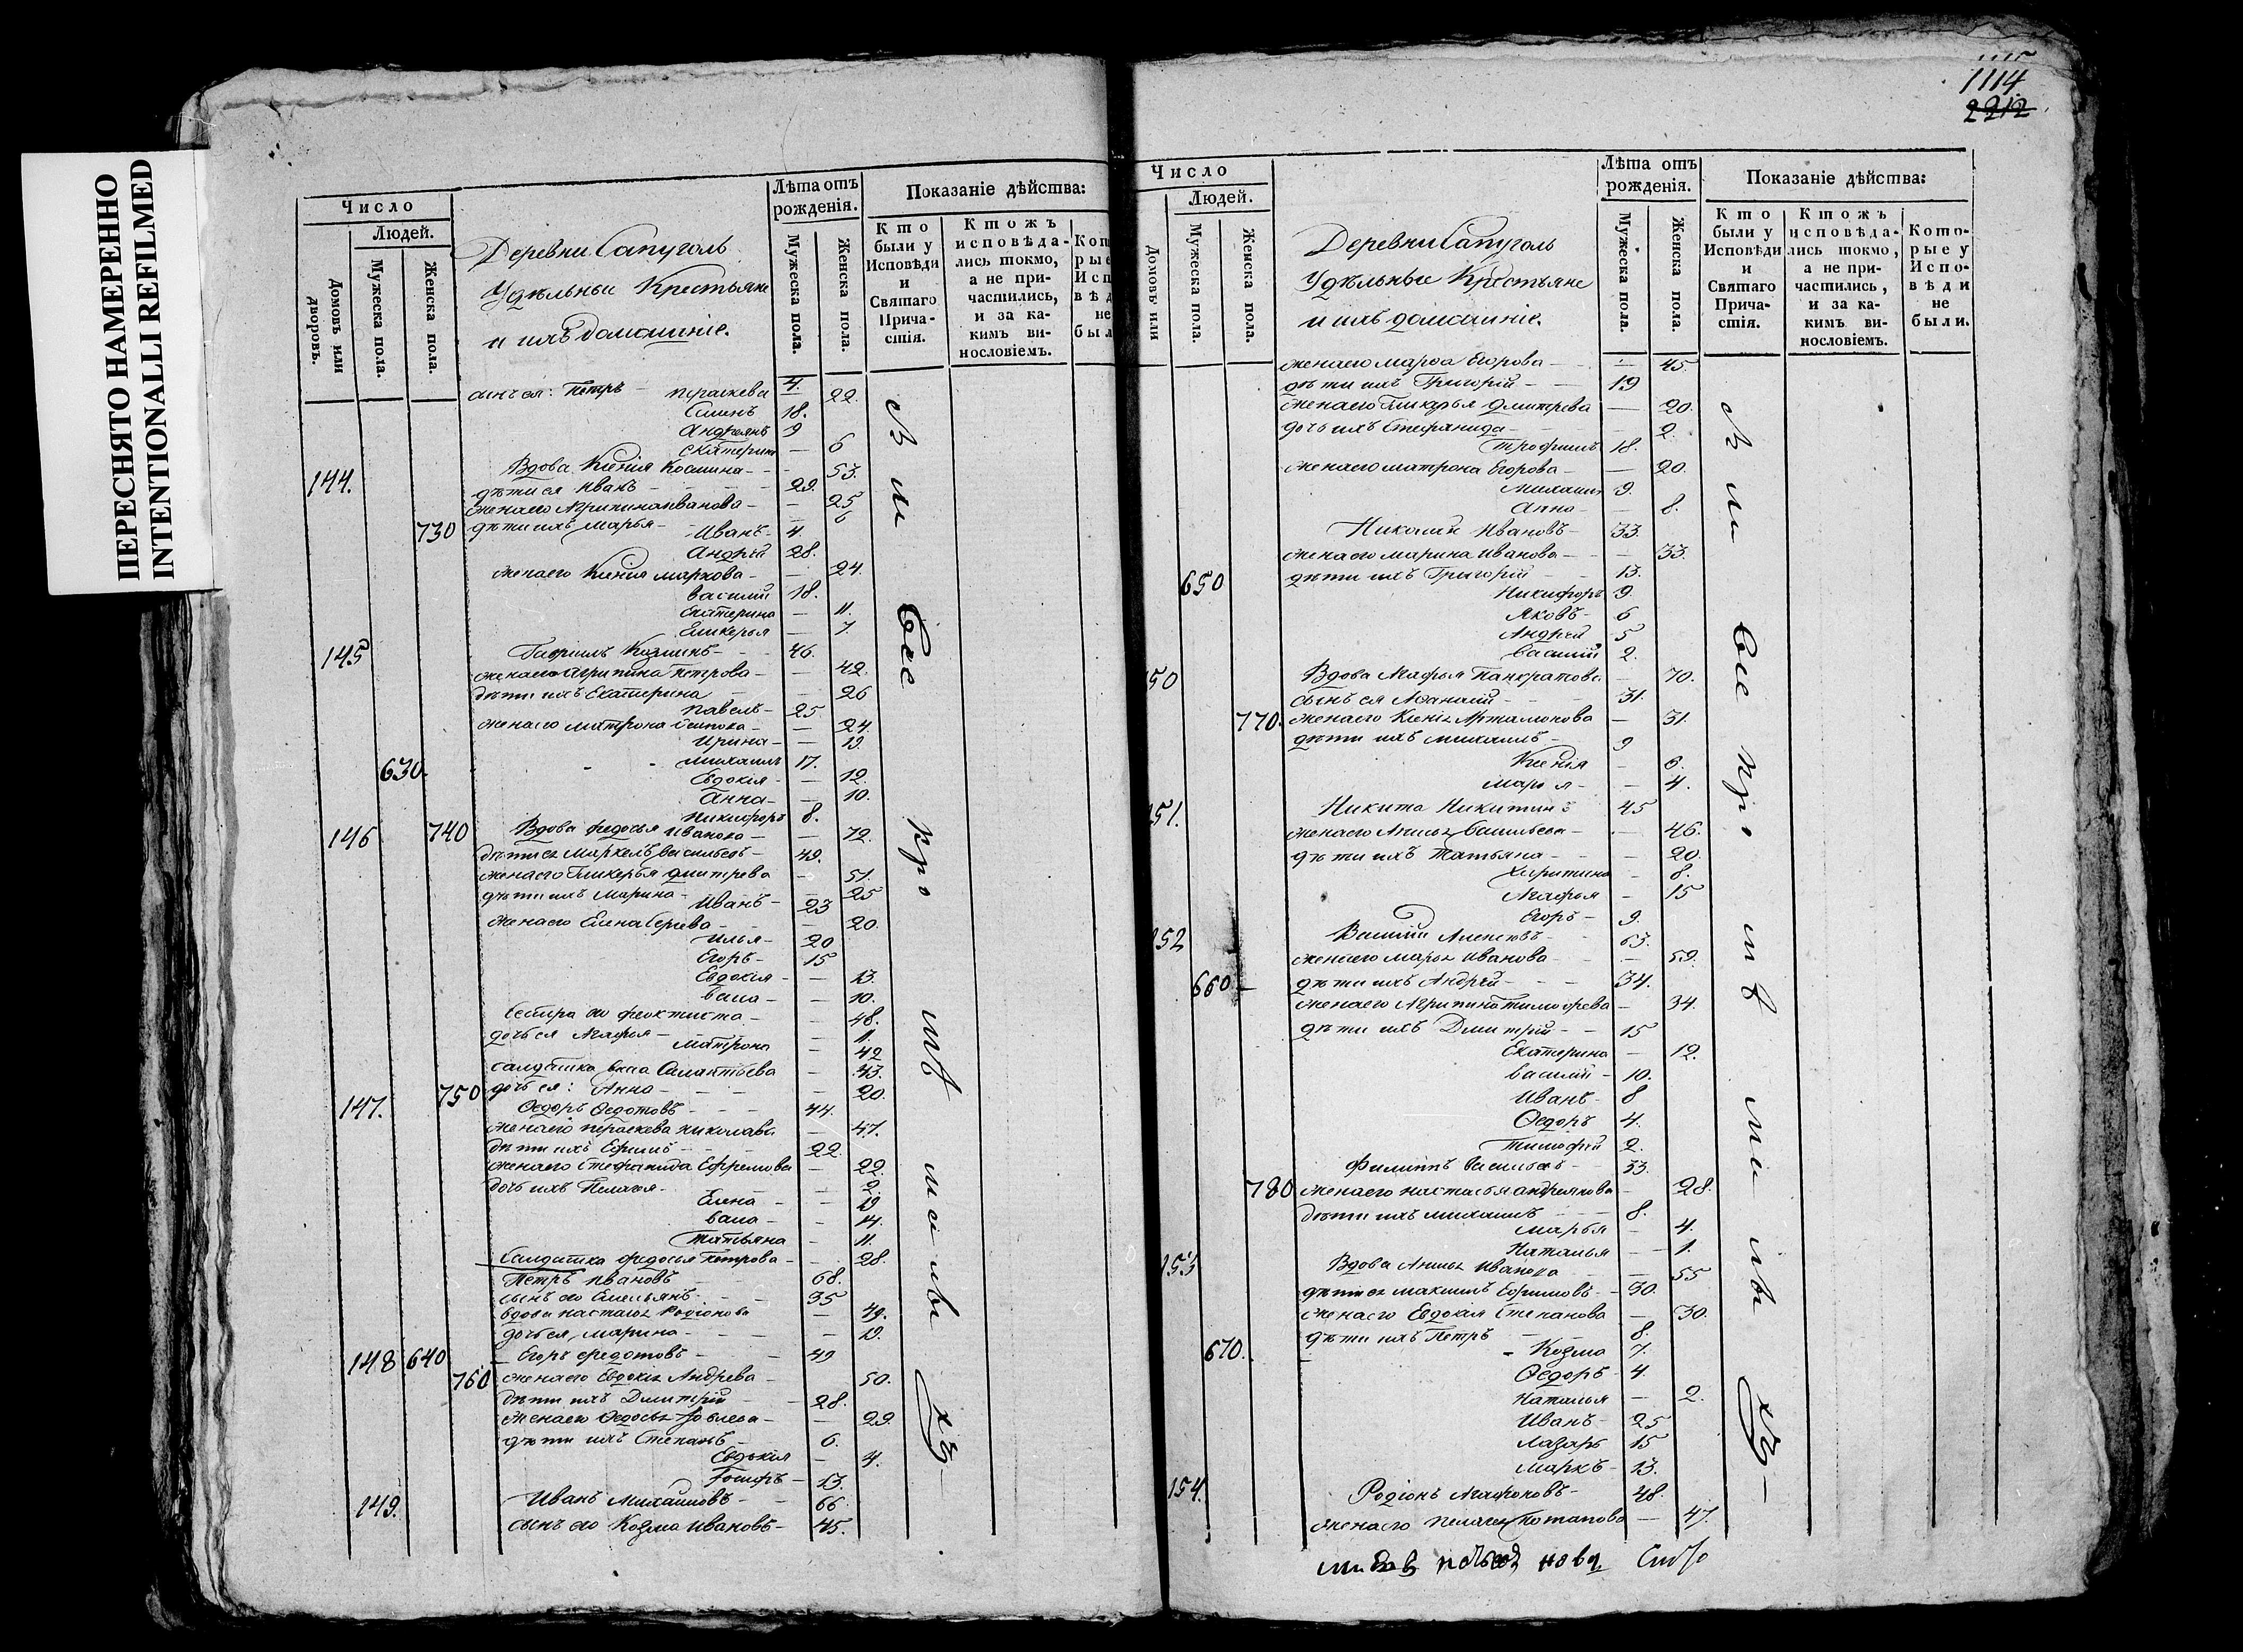 ПЕРЕСНЯТО НАМЕРЕННО
INTENTIONALLI REFILMED
Число
Людей.
Домовъ или дворовъ.
Мужеска пола.
Женска пола.
Деревни Сапуголь
Удѣльныи Крестьяне
и ихъ домашніе.
Лѣта отъ рожденія.
Мужеска пола.
Женска пола.
Показаніе дѣйства:
Кто были у Исповѣди и Святаго Причастія.
Ктожъ исповѣдались токмо, а не причастились, и за какимъ винословіемъ.
Петръ 4.
Пераскева 22.
Семенъ 18.
Андреянъ 9
Екатерина — 6
144. Вдова Ксенія Козмина — 53.
дѣти ея Иванъ 29.
жена его Агрипина Иванова — 25
730 дѣти ихъ Марья — 6
Иванъ 4.
Андрей 28.
жена его Ксенія Маркова — 24.
Василий 18.
Екатерина — 11.
Гликерья — 7.
145 Гаврилъ Козминъ 46.
жена его Агрипина Петрова — 42.
дѣти ихъ Екатерина — 26
Павелъ 25
жена его Матрона Осипова — 24.
Ирина — 19.
630. Михаилъ 17.
Евдокія — 12.
Анна — 10.
Никифоръ 8.
146 740 Вдова Федосья Иванова — 72.
дѣти ея Маркелъ Васильевъ 49.
жена его Гликерья Дмитрева — 51.
дѣти ихъ Марина — 25
Иванъ 23
жена его Елена Сергева — 20.
Илья 20
Егоръ 15
Евдокія — 13.
Васа — 10.
Сестра его Феоктиста — 48.
дочь ея Агафья — 11
Матрона — 42
салдатка Васа — 43.
750 дочь ея: Анна — 20.
147. Ѳедоръ Ѳедотовъ 44.
жена его Пераскева Николава — 47.
дѣти ихъ Ефимъ 22.
жена его Стефанида Ефремова — 22.
дочь ихъ Пелагея — 2.
Елена — 19
Васа — 14.
Татьяна — 11.
Салдатка Федосья Петрова — 28.
Петръ Ивановъ 68.
сынъ его Емельянъ 35
вдова Настасья Родіонова — 49.
дочь ея, Марина — 19.
148 640 Егоръ Федотовъ 49
760 жена его Евдокія Андрева — 50.
дѣти ихъ Дмитрій 28.
жена его Ѳедосья — 29.
дѣти ихъ Степанъ 6.
Евдокія — 4.
Іосифъ 13.
149. Иванъ Михаиловъ 66.
сынъ его Козма Ивановъ 45.
Всѣ
1115
1114
2212
Число
Людей.
Домовъ или
Мужеска пола.
Женска пола.
Деревни Сапуголь
Удѣльныи Крестьяне
и ихъ домашніе.
Лѣта отъ рожденія.
Мужеска пола.
Женска пола.
Показаніе дѣйства:
Кто были у Исповѣди и Святаго Причастія.
Ктожъ исповѣдались токмо, а не причастились, и за какимъ винословіемъ.
Которые у Исповѣди не были.
жена его Марѳа Егорова — 45.
дѣти ихъ Григорій 19
жена его Гликерья Дмитрева — 20.
дочь ихъ Стефанида 2.
Трофимъ 18.
жена его Матрона Егорова — 20.
Михаилъ 9.
Анна — 8.
Николай Ивановъ 33.
жена его Марина Иванова — 33.
650 дѣти ихъ Григорій 13.
Никифоръ 9.
Яковъ 6
Андрей 5
Василий 2.
150 Вдова Агафья Панкратова — 70.
сынъ ея Афанасий 31.
770. жена его Ксенія Артамонова — 31.
дѣти ихъ Михаилъ 9
Ксенія — 6.
Марья — 4.
151. Никита Никитинъ 45
жена его Анисья Васильева — 46.
дѣти ихъ Татьяна — 20.
Харитина — 8.
Агафья — 15
Егоръ 9.
152 Василий Алексѣевъ 63.
жена его Марья Иванова — 59.
660 дѣти ихъ Андрей 34.
жена его Агрипина Тимофева — 34.
дѣти ихъ Дмитрій 15
Екатерина — 12.
Василий 10.
Иванъ 8
Ѳедоръ 4.
Тимофей 2.
Филиппъ Васильевъ 33.
780 жена его Настасья Андреянова — 28.
дѣти ихъ Михаилъ 8.
Марья — 4.
Наталья — 1.
153 Вдова Анисья Иванова — 55
дѣти ея Максимъ Ефимовъ 30.
жена его Евдокія Степанова — 30.
дѣти ихъ Петръ 8.
670. Козма 7.
Ѳедоръ 4.
Наталья — 2.
Иванъ 25
Лазарь 15
Маркъ 13.
154. Родіонъ Агафоновъ 48.
жена его Пелагея Потапова — 47.